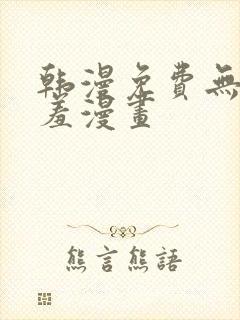 韩漫免费無
羞漫畫
熊言熊語